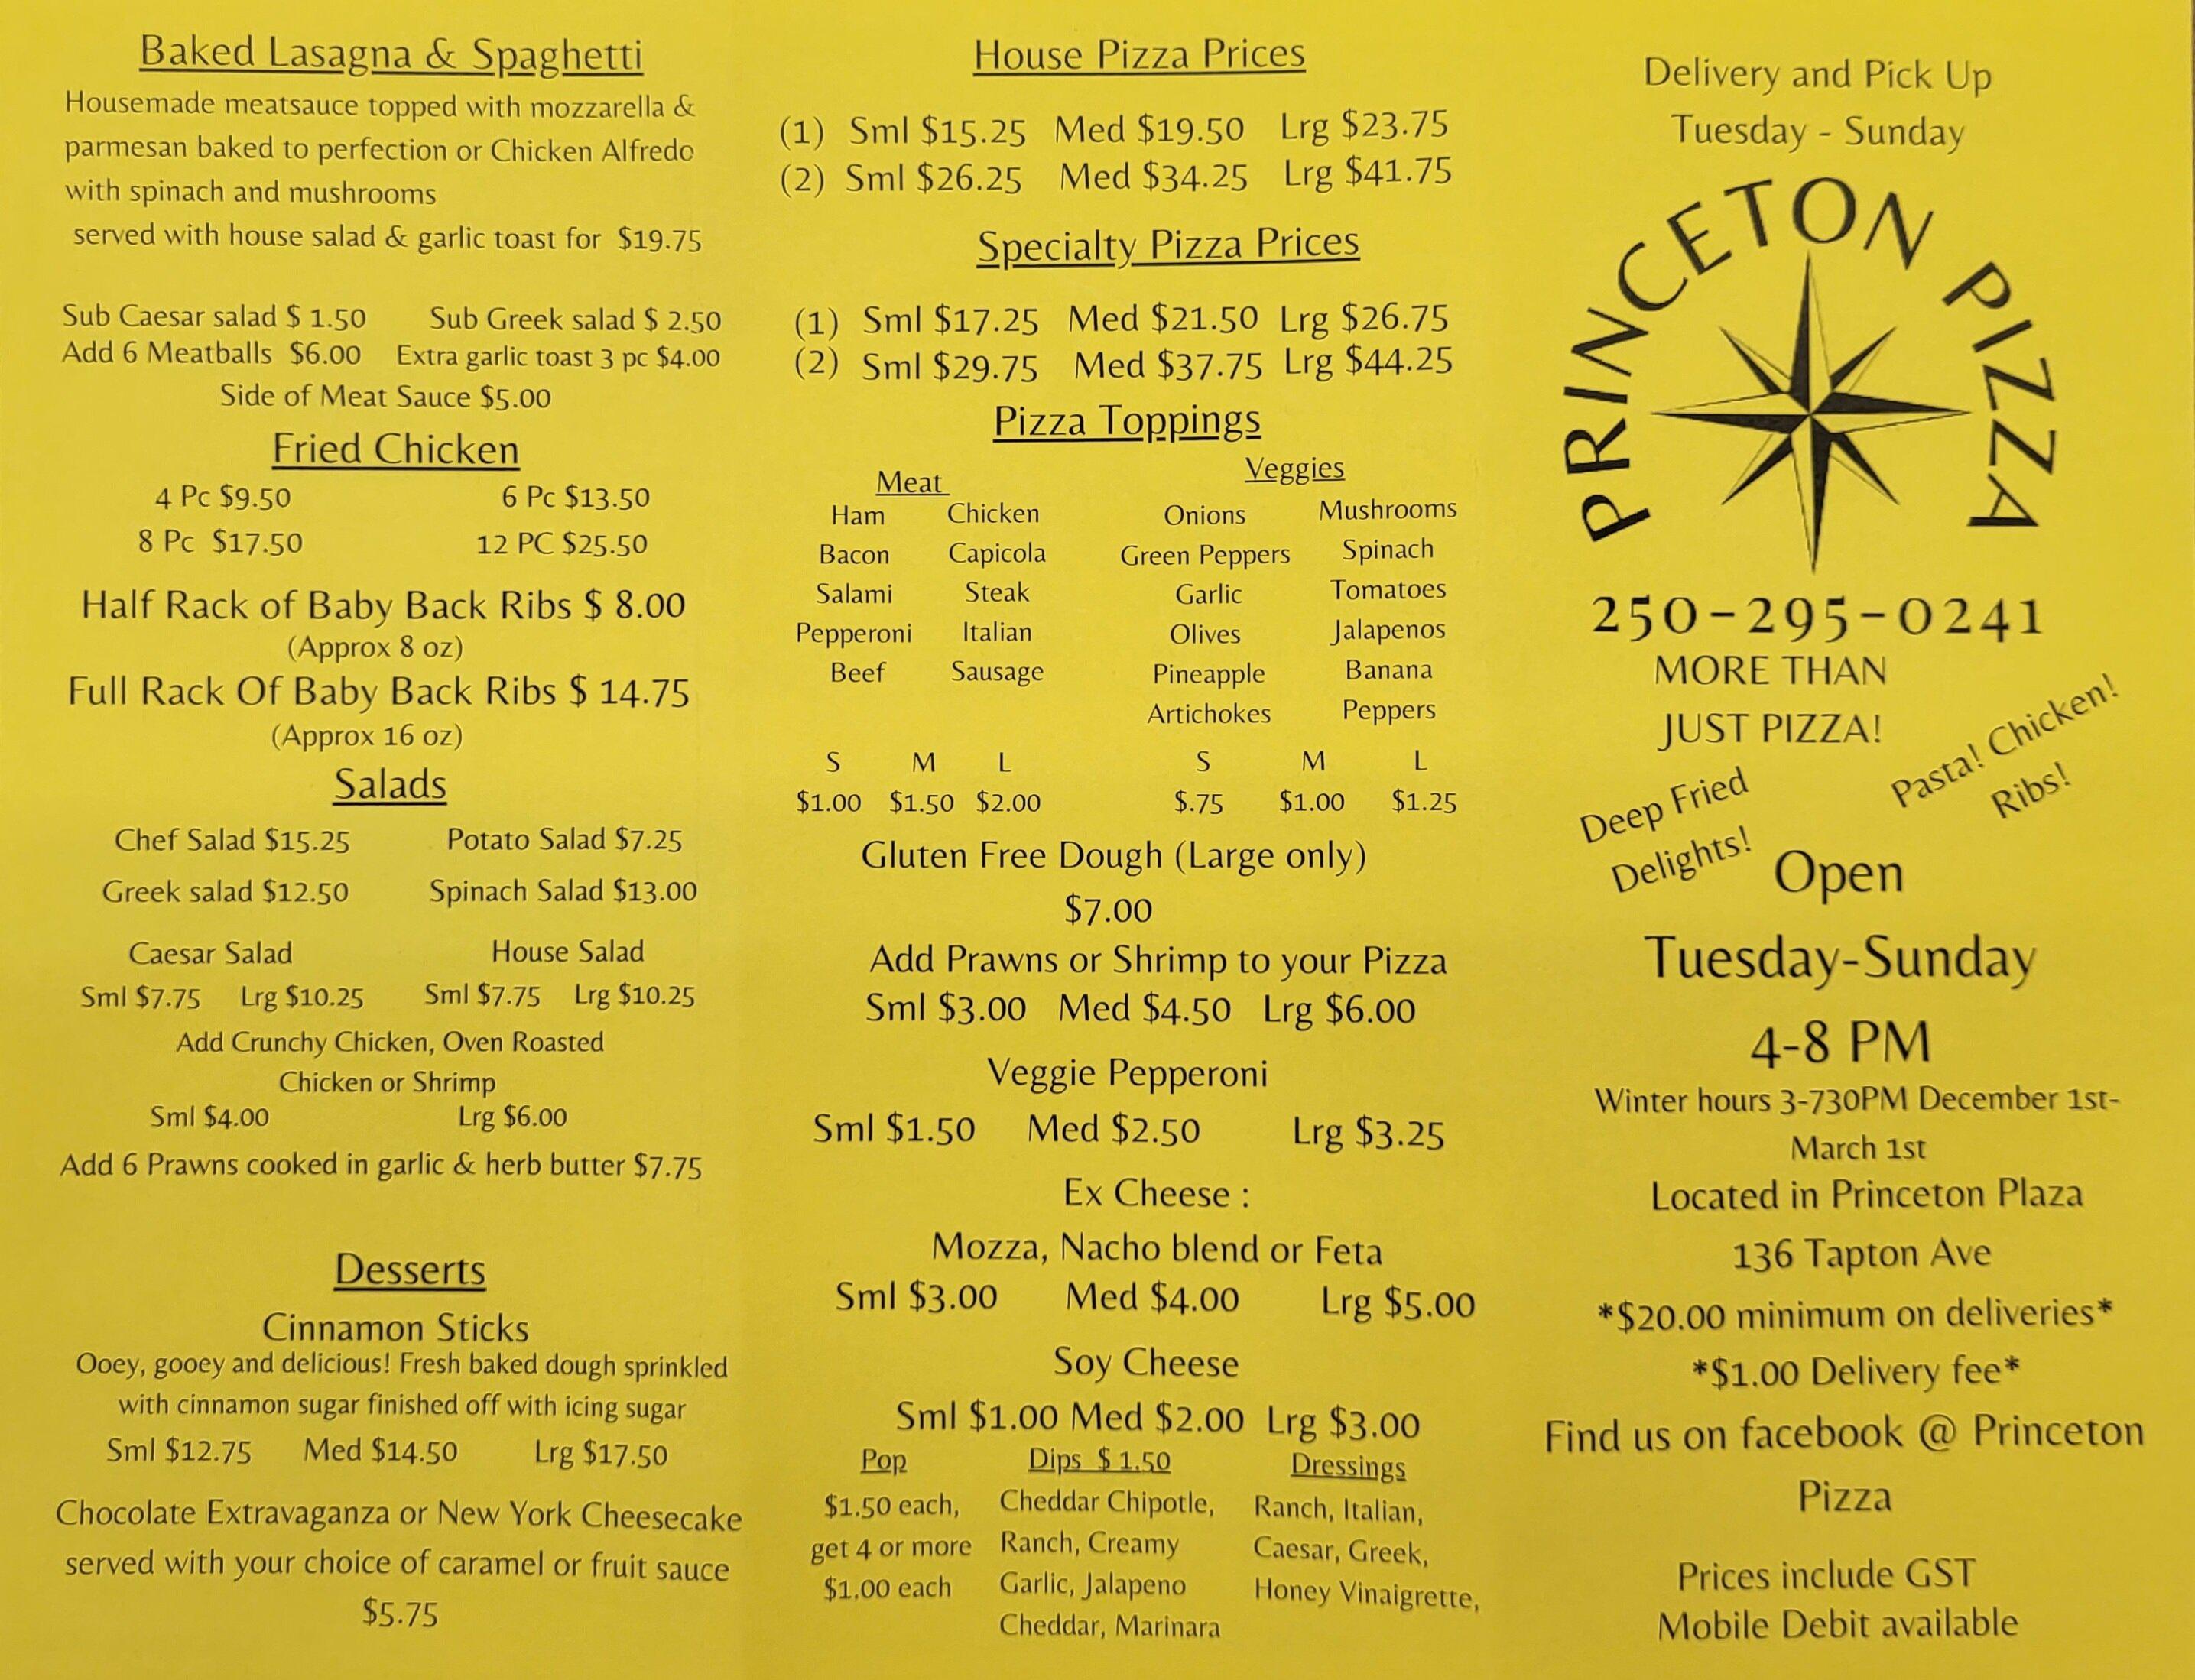 Baked Lasagna & Spaghetti
Housemade meatsauce topped with mozzarella &
parmesan baked to perfection or Chicken Alfredo
with spinach and mushrooms
served with house salad & garlic toast for $19.75
Sub Caesar salad $ 1.50 Sub Greek salad $ 2.50
Add 6 Meatballs $6.00 Extra garlic toast 3 pc $4.00
Side of Meat Sauce $5.00
Fried Chicken
4 Pc $9.50 6 Pc $13.50
8 Pc $17.50 12 PC $25.50
Half Rack of Baby Back Ribs $ 8.00
(Approx 8 oz)
Full Rack Of Baby Back Ribs $ 14.75
(Approx 16 oz)
Salads
Chef Salad $15.25 Potato Salad $7.25
Greek salad $12.50 Spinach Salad $13.00
Caesar Salad House Salad
Sml $7.75 Lrg $10.25 Sml $7.75 Lrg $10.25
Add Crunchy Chicken, Oven Roasted
Chicken or Shrimp
Sml $4.00 Lrg $6.00
Add 6 Prawns cooked in garlic & herb butter $7.75
Desserts
Cinnamon Sticks
Ooey, gooey and delicious! Fresh baked dough sprinkled
with cinnamon sugar finished off with icing sugar
Sml $12.75 Med $14.50 Lrg $17.50
Chocolate Extravaganza or New York Cheesecake
served with your choice of caramel or fruit sauce
$5.75
House Pizza Prices
(1) Sml $15.25 Med $19.50 Lrg $23.75
(2) Sml $26.25 Med $34.25 Lrg $41.75
Specialty Pizza Prices
(1) Sml $17.25 Med $21.50 Lrg $26.75
(2) Sml $29.75 Med $37.75 Lrg $44.25
Pizza Toppings
Meat Veggies
Ham Chicken Onions Mushrooms
Bacon Capicola Green Peppers Spinach
Salami Steak Garlic Tomatoes
Pepperoni Italian Olives Jalapenos
Beef Sausage Pineapple Banana
Artichokes Peppers
S M L S M L
$1.00 $1.50 $2.00 $.75 $1.00 $1.25
Gluten Free Dough (Large only)
$7.00
Add Prawns or Shrimp to your Pizza
Sml $3.00 Med $4.50 Lrg $6.00
Veggie Pepperoni
Sml $1.50 Med $2.50 Lrg $3.25
Ex Cheese :
Mozza, Nacho blend or Feta
Sml $3.00 Med $4.00 Lrg $5.00
Soy Cheese
Sml $1.00 Med $2.00 Lrg $3.00
Pop Dips $ 1.50 Dressings
$1.50 each, Cheddar Chipotle, Ranch, Italian,
get 4 or more Ranch, Creamy Caesar, Greek,
$1.00 each Garlic, Jalapeno Honey Vinaigrette,
Cheddar, Marinara
Delivery and Pick Up
Tuesday - Sunday
PRINCETON PIZZA
250-295-0241
MORE THAN
JUST PIZZA!
Deep Fried
Delights!
Pasta! Chicken!
Ribs!
Open
Tuesday-Sunday
4-8 PM
Winter hours 3-730PM December 1st-
March 1st
Located in Princeton Plaza
136 Tapton Ave
*$20.00 minimum on deliveries*
*$1.00 Delivery fee*
Find us on facebook @ Princeton
Pizza
Prices include GST
Mobile Debit available